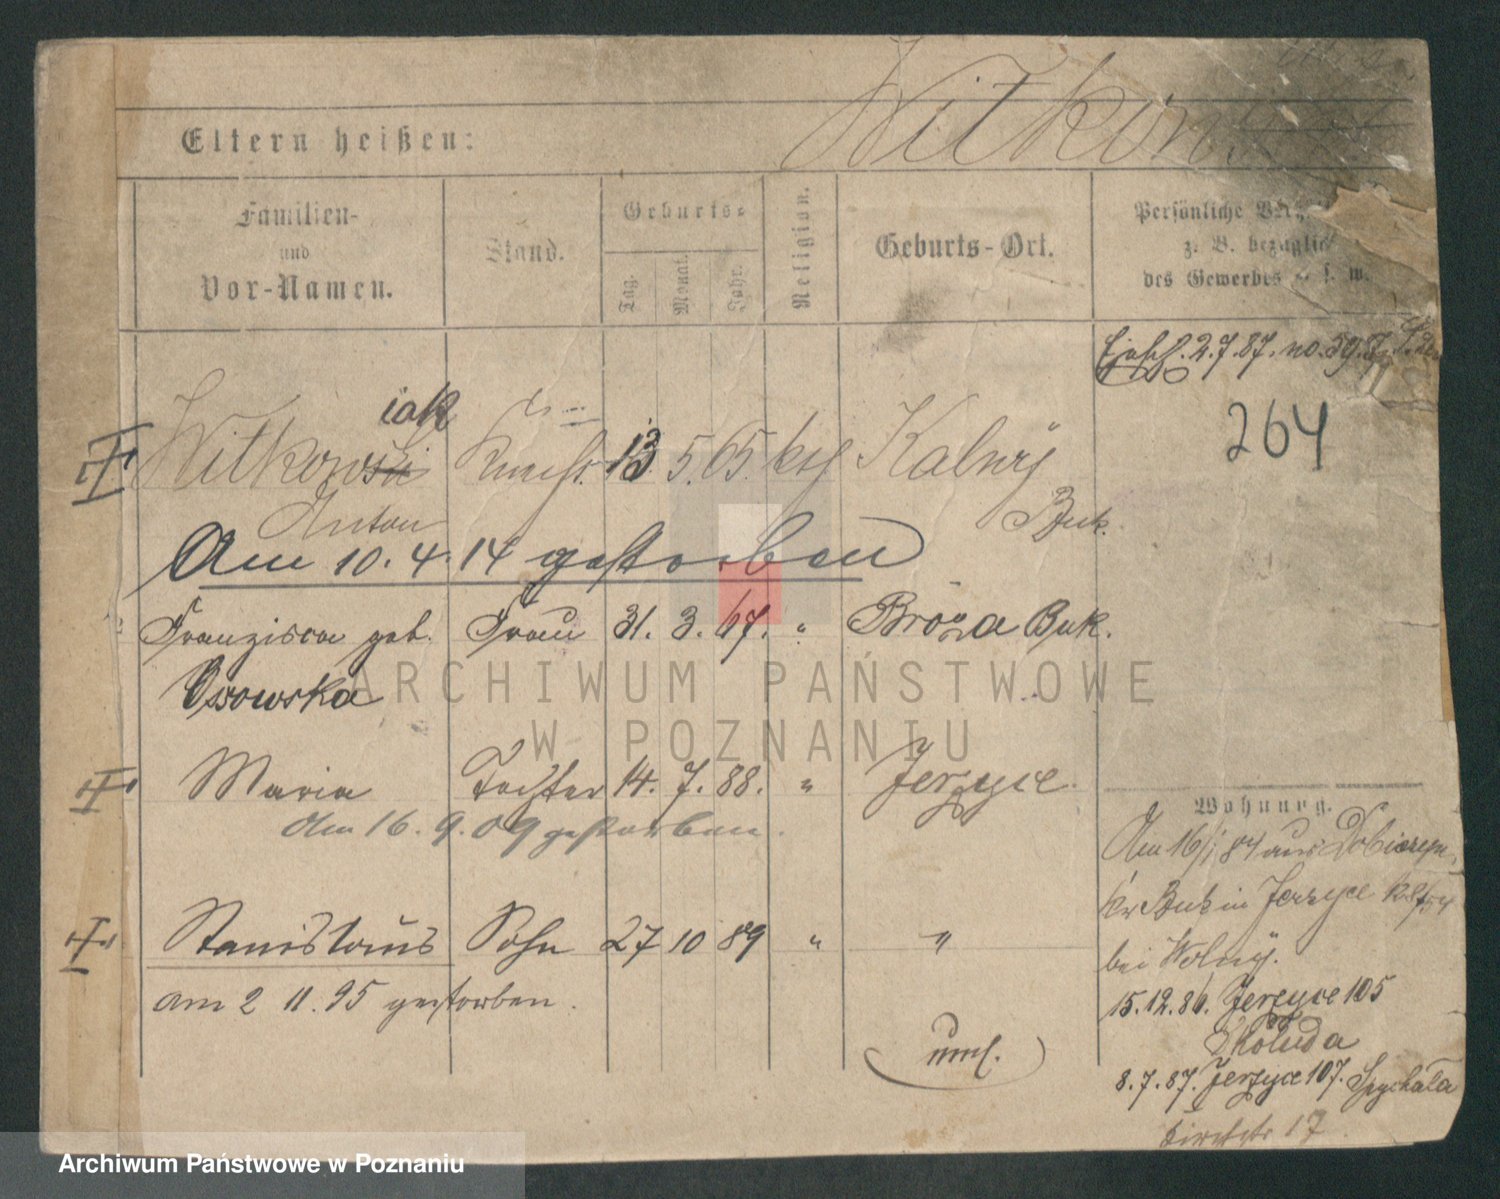 Eltern heißen:
Familien-
und
Vor-Namen.
Stand.
Geburts-
Tag.
Monat.
Jahr.
Religion.
Geburts-Ort.
Persönliche
z. B. bezüglich
des Gewerbes u. s. w.
2.7.87. no. 59.
264
iak
Witkowski 13 5. 65. kth
Anton Buk.
Am 10. 4. 14 gestorben
Franzisca geb. Frau 31. 3. 67. " Broża Buk.
Ossowska
Maria Tochter 14. 7. 88. " Jerzyce.
Am 16. 9. 09 gestorben.
Stanislaus Sohn 27 10 89 " "
am 2 11. 95 gestorben.
Wohnung.
Am 16/1 84 aus
Kr Buk in Jerzyce
bei Wolny.
15.12.86. Jerzyce 105
Skoluda
8.7.87. Jerzyce 107. Spychała
17
ARCHIWUM PAŃSTWOWE
W POZNANIU
Archiwum Państwowe w Poznaniu